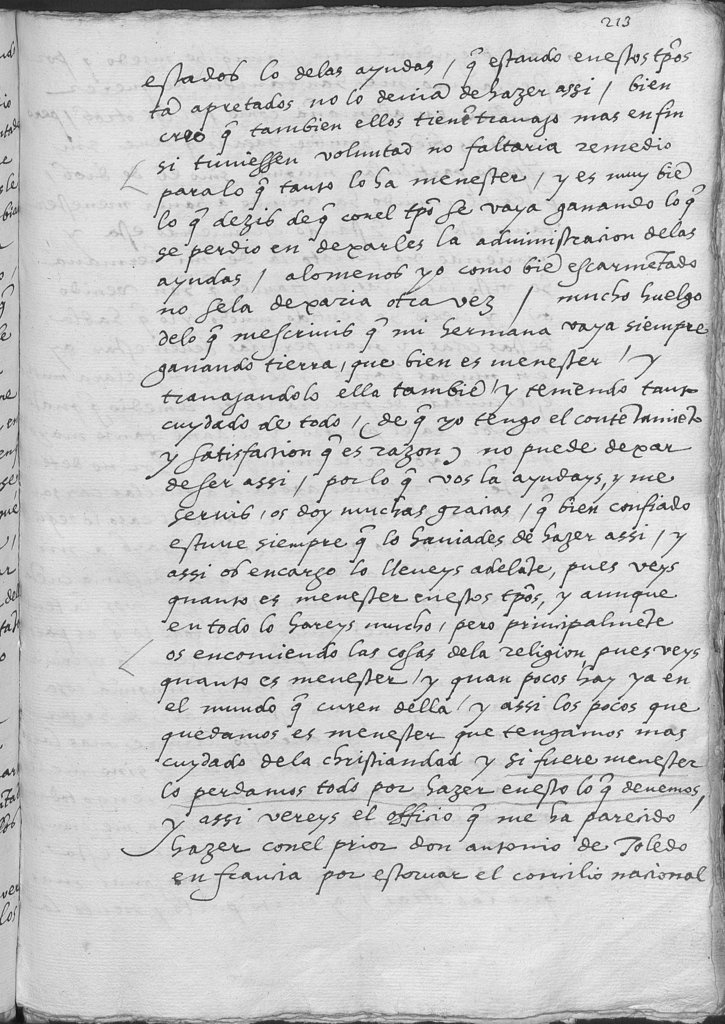 213
estados lo delas ayudas / q̃ estando enestos tp̃os
tã apretados no lo deuiã de hazer assi / bien
creo q̃ tambien ellos tienẽ trauajo mas en fin
si tuuiessen voluntad no faltaria remedio
paralo q̃ tanto lo ha menester / y es muy biẽ
lo q̃ dezis de q̃ conel tp̃o se vaya ganando lo q̃
se perdio en dexarles la administracion delas
ayudas / alomenos yo como biẽ escarmẽtado
no sela dexaria otra vez / mucho huelgo
delo q̃ mescriuis q̃ mi hermana vaya siempre
ganando tierra, que bien es menester / y
trauajandolo ella tambiẽ / y teniendo tanto
cuydado de todo / (de q̃ yo tengo el contẽtamiẽto
y satisfacion q̃ es razon) no puede dexar
de ser assi / por lo q̃ vos la ayudays, y me
seruis, os doy muchas gracias, q̃ bien confiado
estuue siempre q̃ lo hauiades de hazer assi / y
assi os encargo lo lleueys adelãte, pues veys
quanto es menester enestos tp̃os, y aunque
en todo lo hareys mucho, pero principalmẽte
os encomiendo las cosas dela religion pues veys
quanto es menester / y quan pocos hay ya en
el mundo q̃ curen della / y assi los pocos que
quedamos es menester que tengamos mas
cuydado dela christiandad y si fuere menester
lo perdamos todo por hazer enesto lo q̃ deuemos,
y assi vereys el officio q̃ me ha parecido
hazer conel prior don antonio de Toledo
en francia por estoruar el concilio nacional